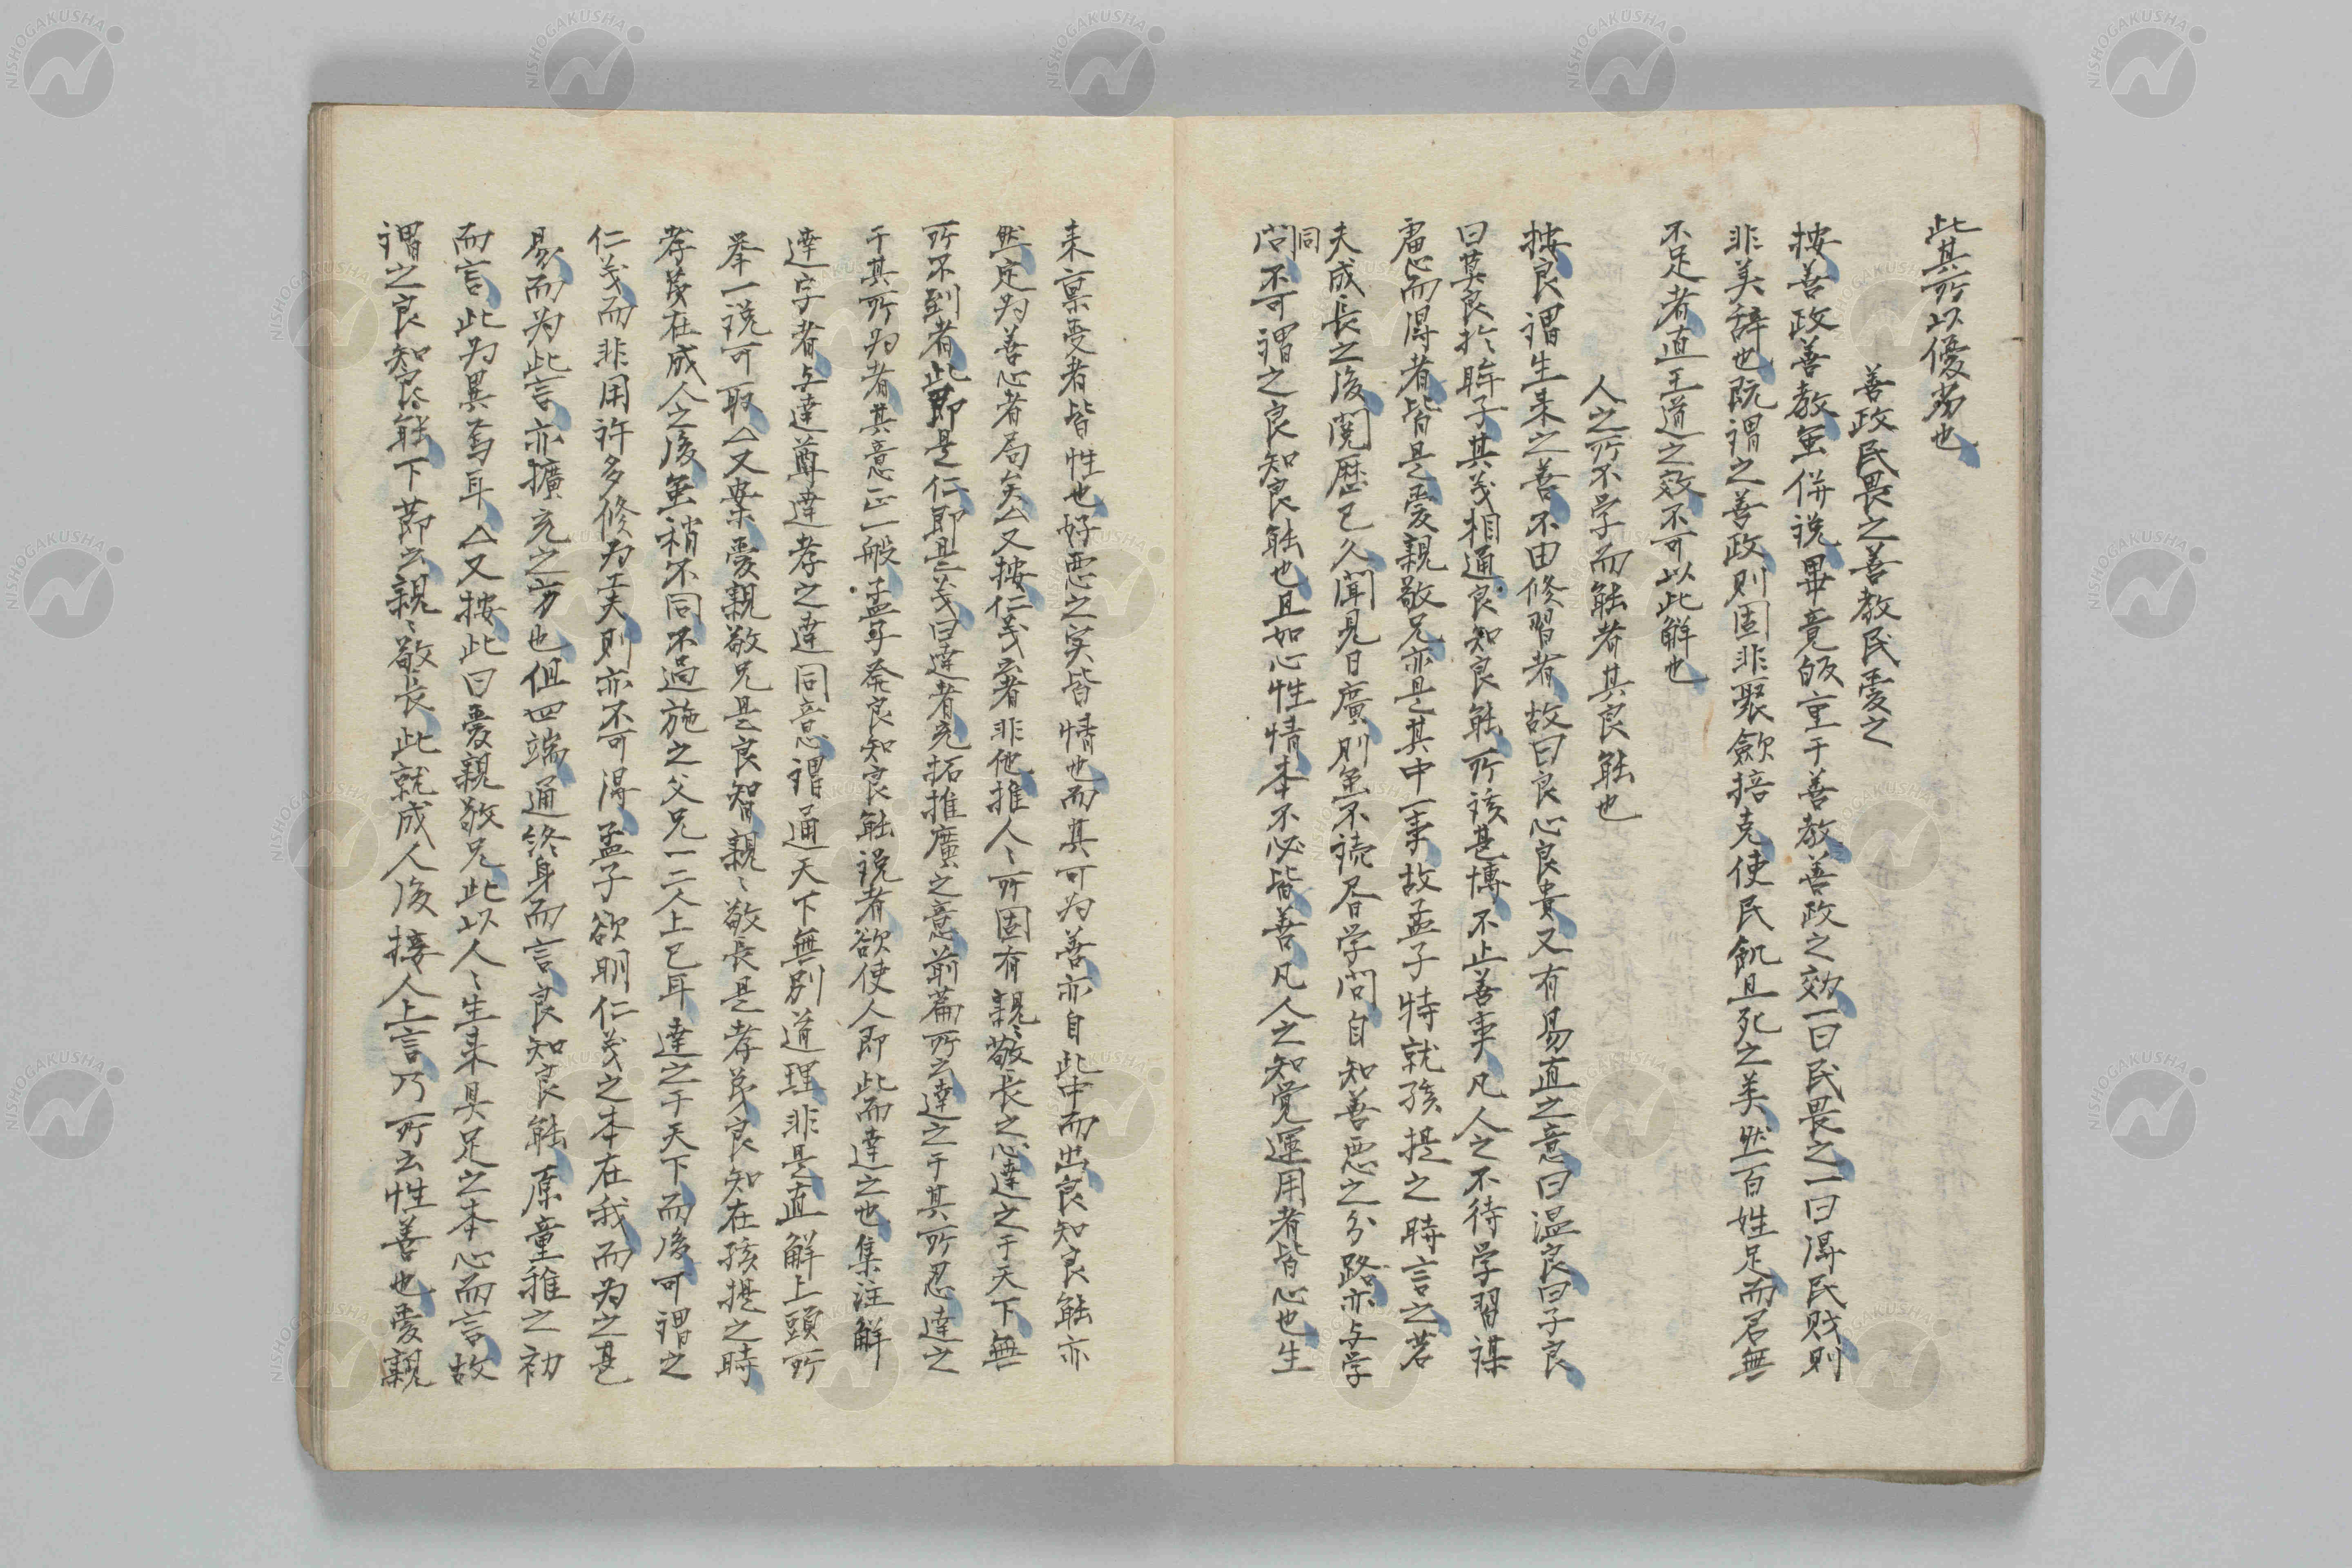 此其所以優劣也
善政民畏之善教民愛之
按善政善教虽併説畢竟皈重于善教善政之效一曰民畏之一曰得民財則
非美辞也既謂之善政則固非聚斂掊克使民飢且死之类然百姓足而君無
不足者直王道之效不可以此解也
人之所不学而能者其良能也
按良謂生来之善不由修習者故曰良心良貴又有易直之意曰温良曰子良
曰莫良於眸子其义相通良知良能所該甚博不止善事凡人之不待学習謀
慮而得者皆是愛親敬兄亦是其中一事故孟子特就孩提之時言之若
夫成長之後閲歴已久聞見日廣則虽不読書学問自知善悪之分路亦与学
問同不可謂之良知良能也且如心性情本不必皆善凡人之知覚運用者皆心也生
来稟受者皆性也好悪之実皆情也而其可为善亦自此中而出良知良能亦
然定为善心者局矣△又按仁义者非他推人〻所固有親〻敬長之心達之于天下無
所不到者此即是仁即是义曰達者充拓推廣之意前篇所云達之于其所忍達之
于其所为者其意正一般孟子発良知良能説者欲使人即此而達之也集注解
達字者与達尊達孝之達同意謂通天下無別道理非是直解上頭所
挙一説可取△又案愛親敬兄是良智親〻敬長是孝弟良知在孩提之時
孝弟在成人之後虽稍不同不過施之父兄一二人上已耳達之于天下而後可謂之
仁义而非用許多修为工夫則亦不可得孟子欲明仁义之本在我而为之甚
易而为此言亦擴充之方也但四端通終身而言良知良能原童稚之初
而言此为異焉耳△又按此曰愛親敬兄此以人〻生来具足之本心而言故
謂之良知良能下節云親〻敬長此就成人後接人上言乃所云性善也愛親
NISHOGAKUSHA